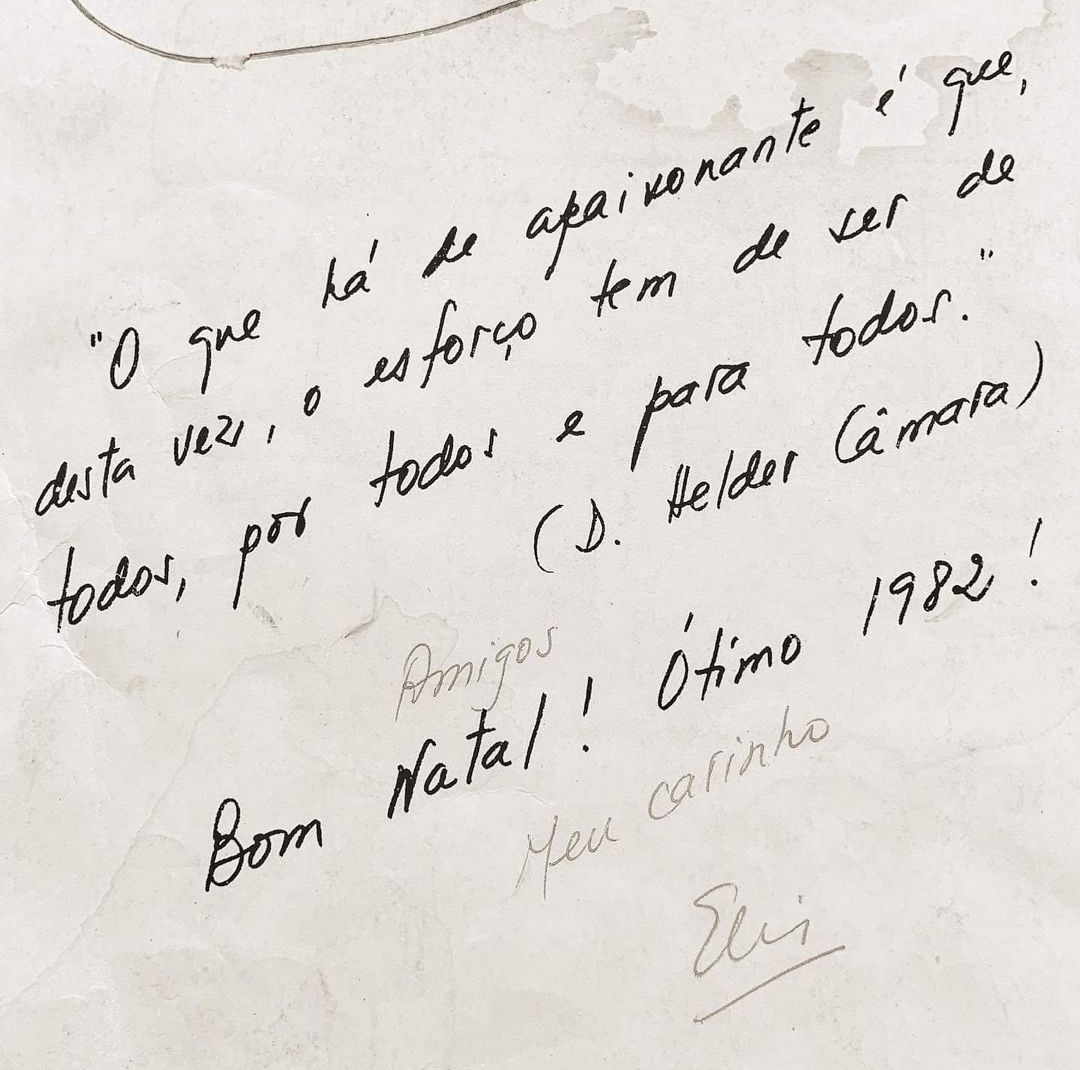 "O que há de apaixonante é que,
desta vez, o esforço tem de ser de
todos, por todos e para todos."
(D. Helder Câmara)
Amigos
Bom Natal! Ótimo 1982!
Meu carinho
Elis